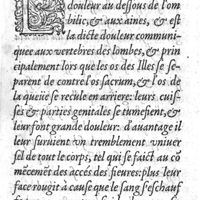 douleur au dessous de l'om
bilic, & aux aines, & est
la dicte douleur communi-
quee aux vertebres des lombes, & prin
cipalement lors que les os des Illes se se-
parent de contre l'os sacrum, & l'os de
la queüe se recule en arriere: leurs cuis-
ses & parties genitales se tumefient, &
leur font grande douleur: d'auantage il
leur suruient vn tremblement vniuer
sel de tout le corps, tel qui se faict au cõ
mẽcemẽt des accés des fieures: plus leur
face rougit à cause que le sang s'eschauf